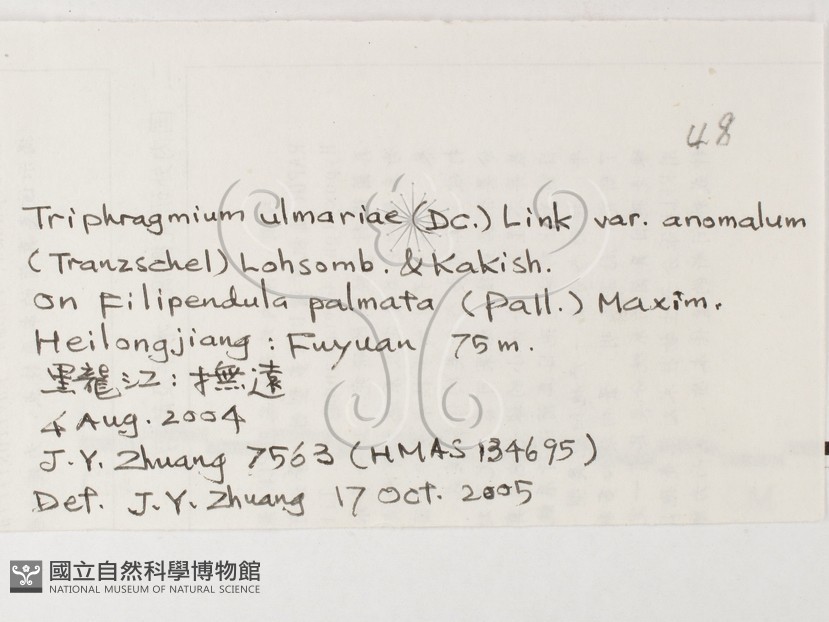 48
Triphragmium ulmariae (DC.) Link var. anomalum
(Tranzschel) Lohsomb. & Kakish.
on Filipendula palmata (Pall.) Maxim.
Heilongjiang : Fuyuan 75 m.
黑龍江 : 撫遠
4 Aug. 2004
J.Y. Zhuang 7563 (HMAS 134695)
Det. J.Y. Zhuang 17 Oct. 2005
國立自然科學博物館
NATIONAL MUSEUM OF NATURAL SCIENCE